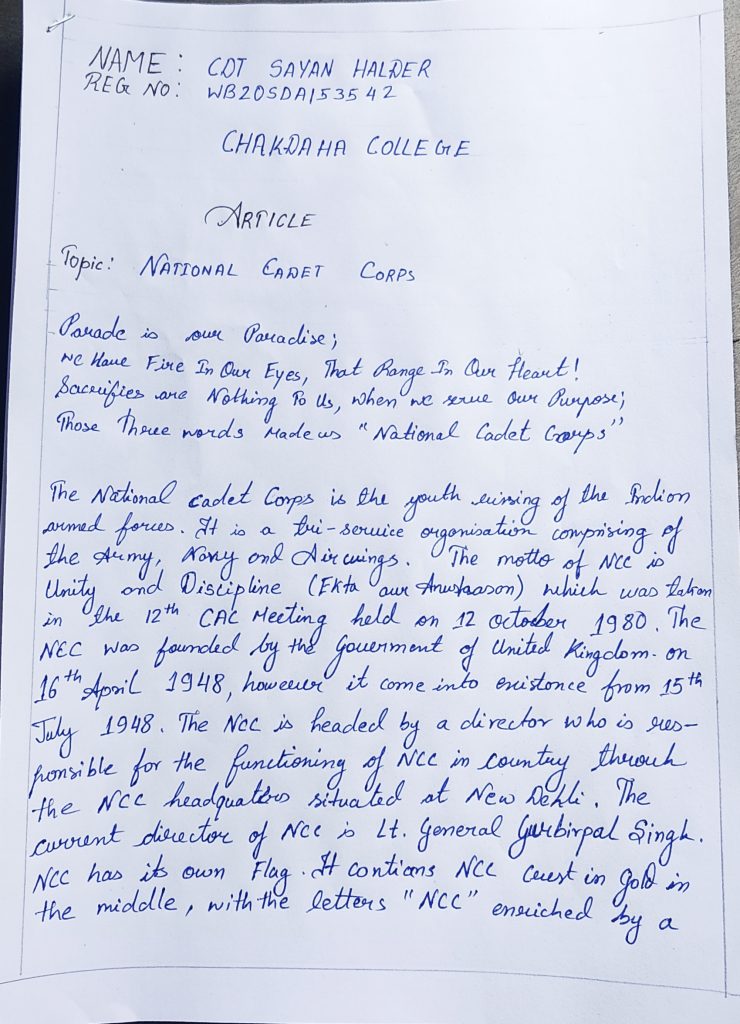 NAME : CDT SAYAN HALDER
REG NO: WB20SDA153542
CHAKDAHA COLLEGE
ARTICLE
Topic: NATIONAL CADET CORPS
Parade is our Paradise;
We Have Fire In Our Eyes, That Range In Our Heart!
Sacrifies are Nothing To Us, when we serve our Purpose;
Those Three words Made us "National Cadet Corps"
The National cadet Corps is the youth wing of the Indian
armed forces. It is a tri-service organisation comprising of
the Army, Navy and Air wings. The motto of NCC is
Unity and Discipline (Ekta aur Anushason) which was taken
in the 12th CAC Meeting held on 12 october 1980. The
NCC was founded by the Government of United Kingdom. on
16th April 1948, however it come into existence from 15th
July 1948. The NCC is headed by a director who is res-
ponsible for the functioning of NCC in country through
the NCC headquaters situated at New Dehli. The
current director of NCC is Lt. General Gurbirpal Singh.
NCC has its own Flag. It contians NCC crest in gold in
the middle, with the letters "NCC" enriched by a